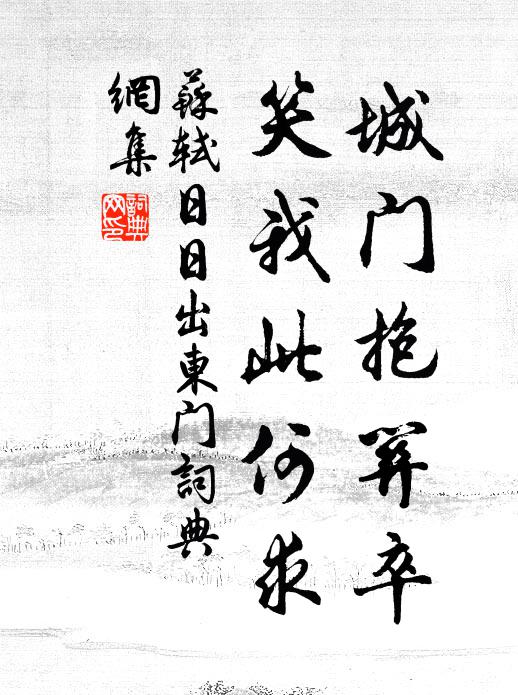 城门抱関卒
笑我此何求
蘇軾日日出東门詞典
網集
詞典
网印